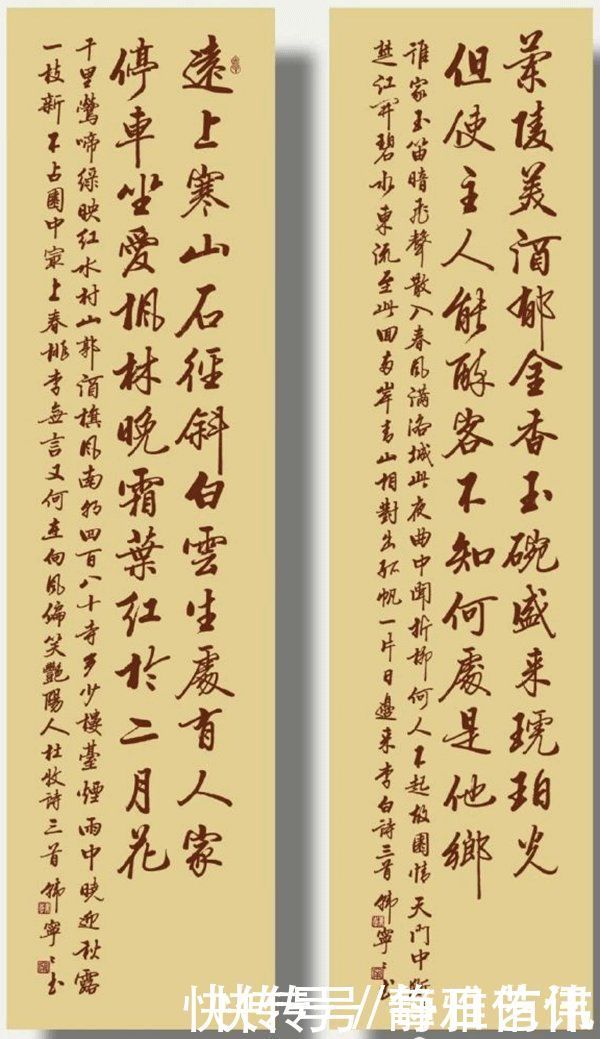 蘭陵美酒郁金香玉碗盛来琥珀光
但使主人能醉客不知何處是他鄉
誰家玉笛暗飛聲散入春風滿洛城此夜曲中聞折柳何人不起故園情天門中斷
楚江開碧水東流至此回兩岸青山相對出孤帆一片日邊来李白詩三首韓寧〻書
遠上寒山石徑斜白雲生處有人家
停車坐愛楓林晚霜葉紅於二月花
千里鶯啼綠映紅水村山郭酒旗風南朝四百八十寺多少樓臺煙雨中曉迎秋露
一枝新不占園中最上春桃李無言又何在向風偏笑艷陽人杜牧詩三首韓寧〻書